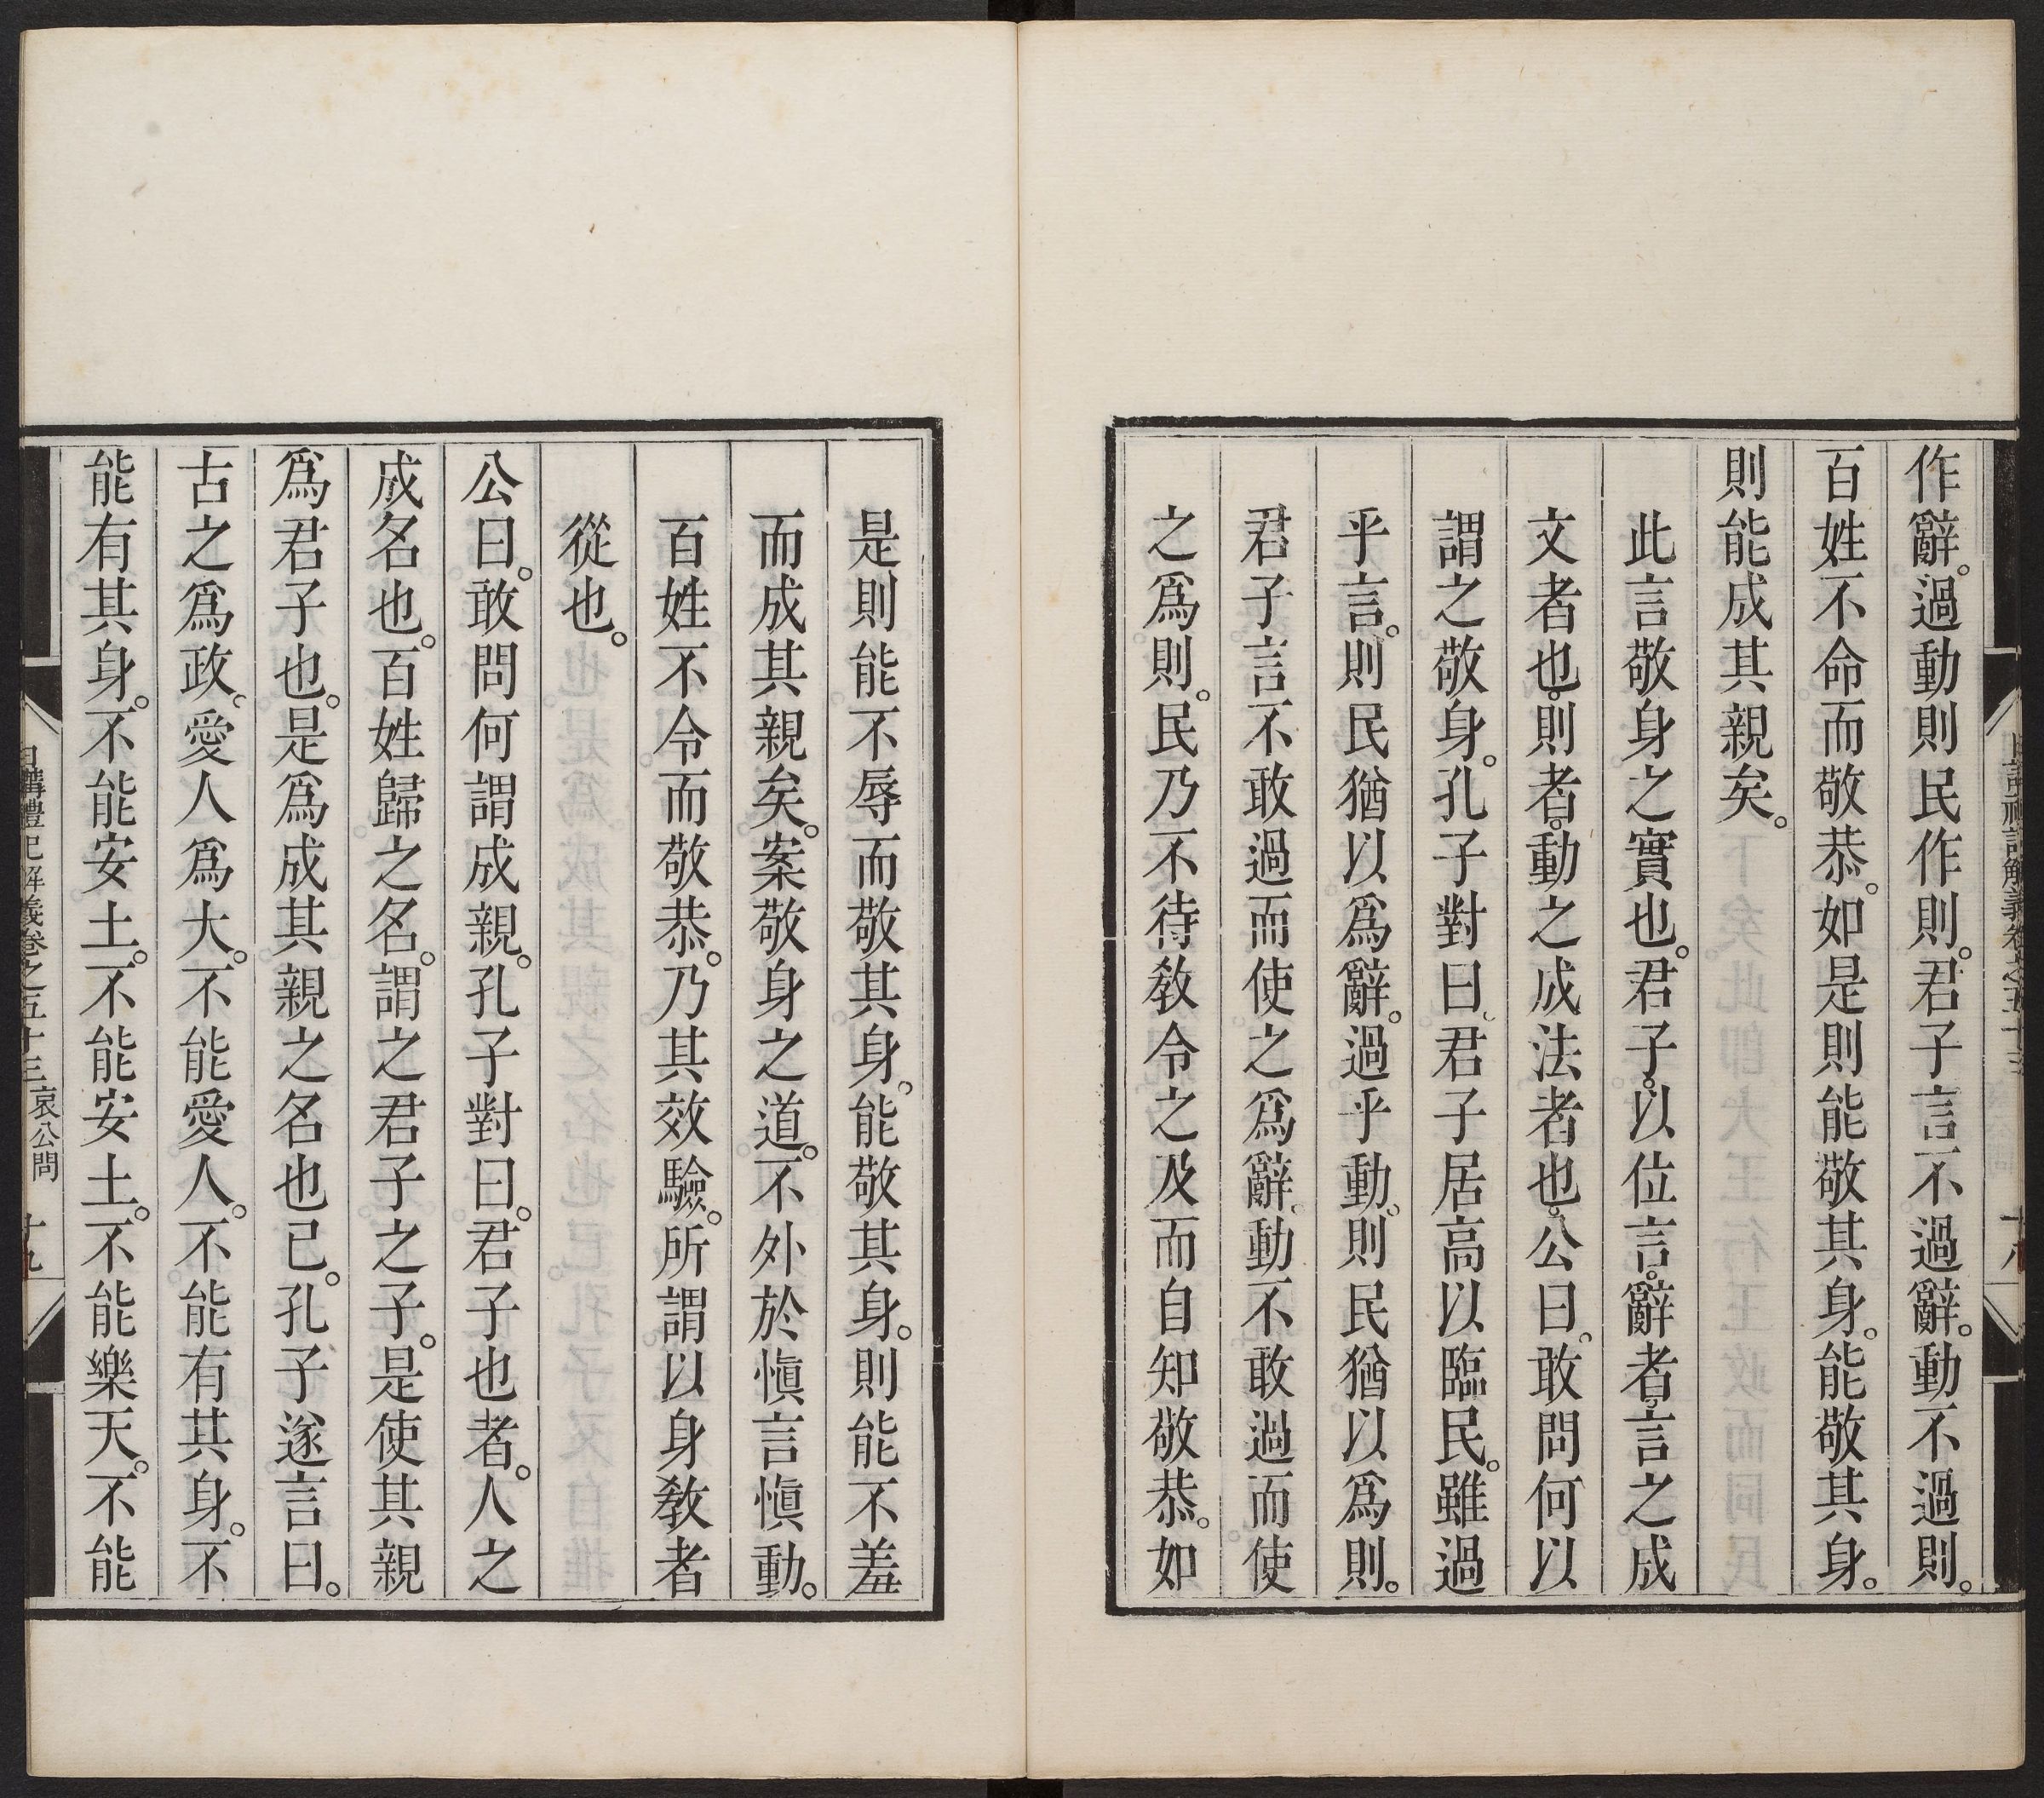 作辭。過動則民作則。君子言不過辭。動不過則。
百姓不命而敬恭。如是則能敬其身。能敬其身。
則能成其親矣。
此言敬身之實也。君子。以位言。辭者。言之成
文者也。則者。動之成法者也。公曰。敢問何以
謂之敬身。孔子對曰。君子居高以臨民。雖過
乎言。則民猶以爲辭。過乎動。則民猶以爲則。
君子言不敢過而使之爲辭。動不敢過而使
之爲則。民乃不待敎令之及而自知敬恭。如
是則能不辱而敬其身。能敬其身。則能不羞
而成其親矣。案敬身之道。不外於愼言愼動。
百姓不令而敬恭。乃其效驗。所謂以身敎者
從也。
公曰。敢問何謂成親。孔子對曰。君子也者。人之
成名也。百姓歸之名。謂之君子之子。是使其親
爲君子也。是爲成其親之名也已。孔子遂言曰。
古之爲政。愛人爲大。不能愛人。不能有其身。不
能有其身。不能安土。不能安土。不能樂天。不能
日講禮記解義卷之五十三 哀公問 十九